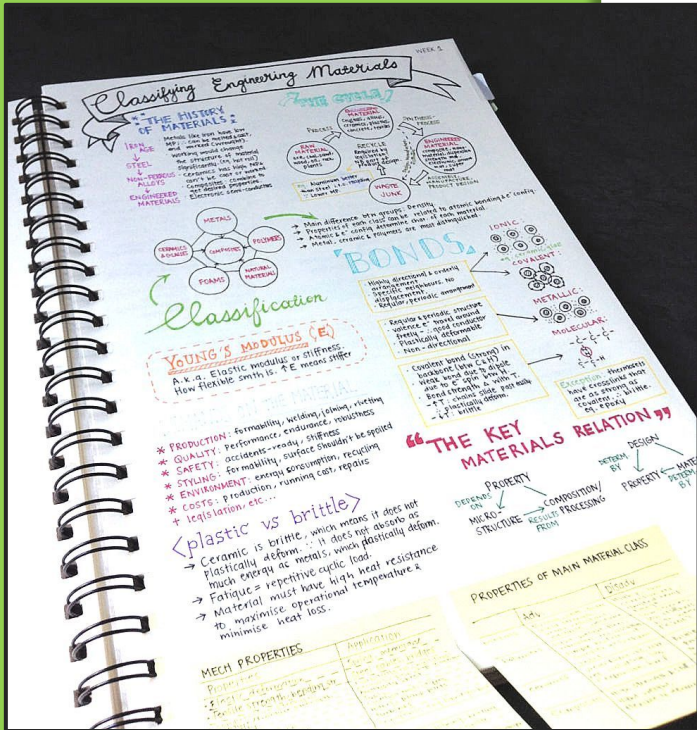 WEEK 1
Classifying Engineering Materials
THE HISTORY
OF MATERIALS:
IRON
AGE
STEEL
NON-FERROUS
ALLOYS
ENGINEERED
MATERIALS
Metals like iron have low
MP, ∴ can be melted & cast,
and worked (wrought).
working would change
the structure of material
significantly
Ceramics has high
can't be cast or worked
Composites: combine to
get desired properties
Electronic: semi-conductors
THE CYCLE
PROCESS
SYNTHESIS
PROCESS
RAW
MATERIAL
RECYCLE
Required by
legislation
ENGINEERED
MATERIAL
WASTE
JUNK
ASSEMBLE,
MANUFACTURE,
PRODUCT DESIGN
Aluminium better
↓ MP
METALS
CERAMICS
& GLASSES
COMPOSITES
POLYMERS
FOAMS
NATURAL
MATERIALS
Classification
→ Main difference btw groups: Density
→ Properties of each class can be related to atomic bonding & e⁻ config.
→ Atomic & e⁻ config determine char. of each material
→ Metal, ceramic & polymers are most distinguished
"BONDS"
- Highly directional & orderly
arrangement
- Specific neighbours. No
displacement.
- Regular, periodic arrangement
- Regular & periodic structure
- Valence e⁻ travel around
freely ∴ good conductor
- Plastically deformable
- Non-directional
- Covalent bond (strong) in
backbone (btw C & H)
- Weak bond due to dipole
due to e⁻ spin btw H
- Bond strength Δ with T.
- ↑T: chains slide past easily
∴ plastically deform.
- ↓T: brittle
IONIC:
eg. ceramic/glass
COVALENT:
METALLIC:
MOLECULAR:
-C-C-C-
H
-C-C-C-
Exception: thermosets
have crosslinks that
are as strong as
covalent ∴ brittle.
eg. epoxy
YOUNG'S MODULUS (E)
A.k.a. Elastic modulus or stiffness.
How flexible smth is. ↑E means stiffer
* PRODUCTION: formability, welding, joining, riveting
* QUALITY: Performance, endurance, robustness
* SAFETY: accidents-ready, stiffness
* STYLING: formability, surface shouldn't be spoiled
* ENVIRONMENT: energy consumption, recycling
* COSTS: production, running cost, repairs
+ legislation, etc...
"THE KEY
MATERIALS RELATION"
PROPERTY
DEPENDS
ON
MICRO-
STRUCTURE
RESULTS
FROM
COMPOSITION/
PROCESSING
DESIGN
DETERM
BY
PROPERTY
MATE
DETERM
BY
<plastic vs brittle>
→ Ceramic is brittle, which means it does not
plastically deform. ∴ it does not absorb as
much energy as metals, which plastically deform.
→ Fatigue = repetitive cyclic load.
→ Material must have high heat resistance
to maximise operational temperature &
minimise heat loss.
MECH PROPERTIES
Properties
Application
PROPERTIES OF MAIN MATERIAL CLASS
Adv
Disadv